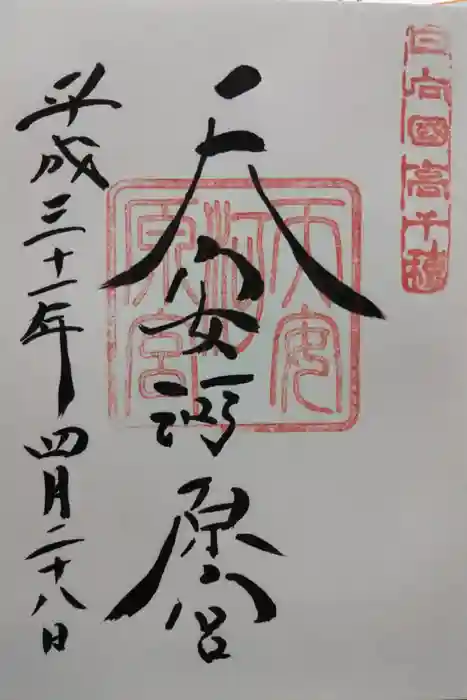 日向國高千穂
天安河原宮
天安河原宮
平成三十一年四月二十八日